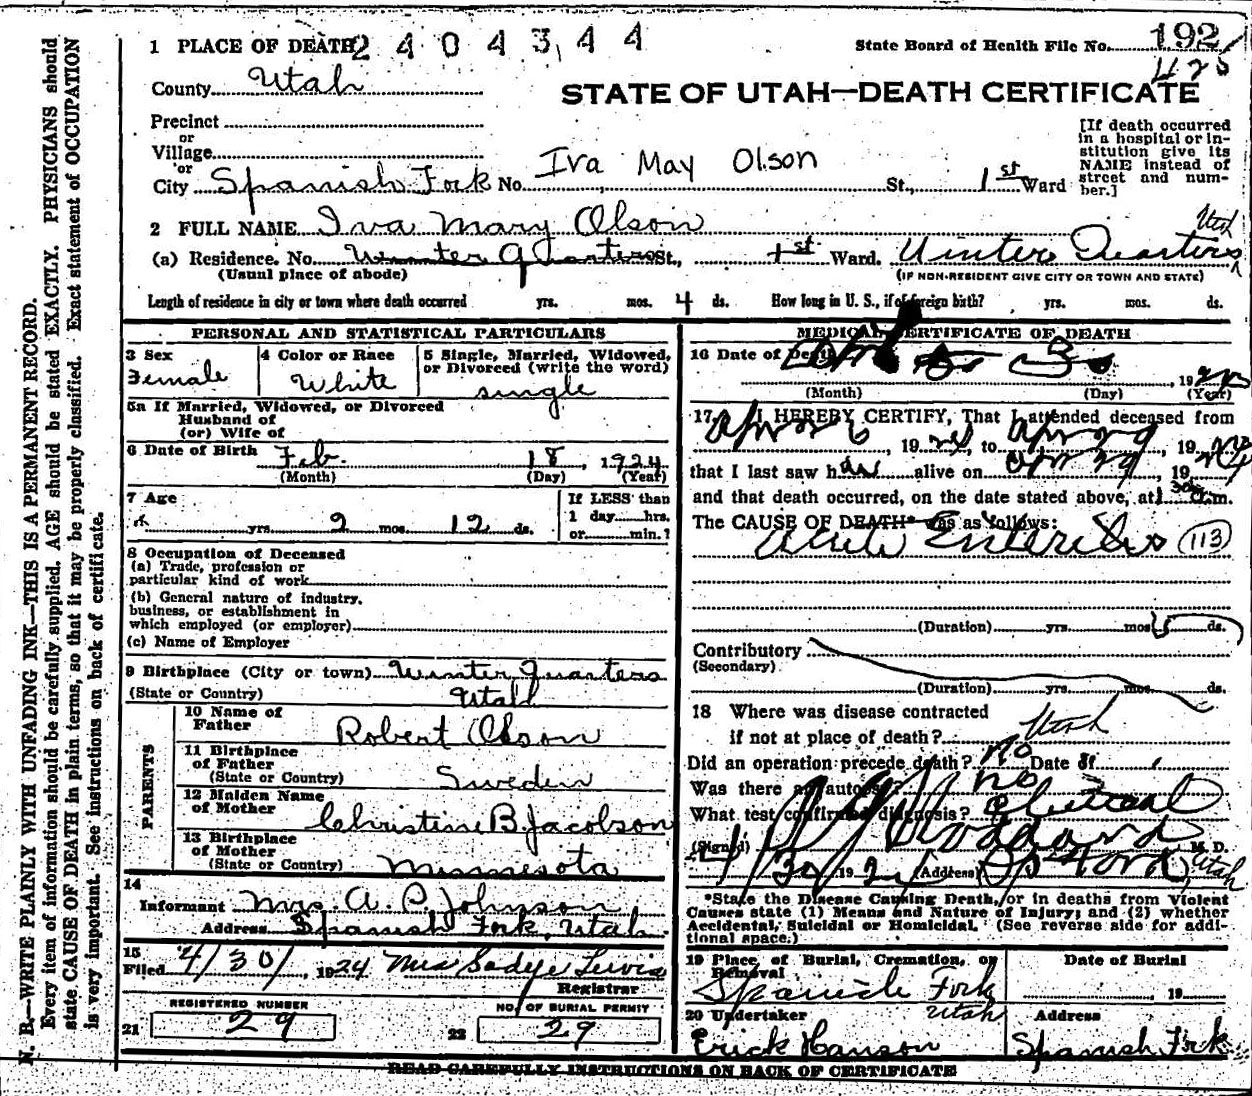 1 PLACE OF DEATH 2 4 0 4 3 4 4
State Board of Health File No. 192
425
County Utah
STATE OF UTAH—DEATH CERTIFICATE
Precinct
or
Village
or
City Spanish Fork No. Iva May Olson St., 1st Ward
[If death occurred
in a hospital or in-
stitution give its
NAME instead of
street and num-
ber.]
2 FULL NAME Iva Mary Olson
(a) Residence. No. Winter Quarters St., 1st Ward. Winter Quarters Utah
(Usual place of abode)
(IF NON-RESIDENT GIVE CITY OR TOWN AND STATE)
Length of residence in city or town where death occurred yrs. mos. 4 ds. How long in U. S., if of foreign birth? yrs. mos. ds.
PERSONAL AND STATISTICAL PARTICULARS
3 Sex
Female
4 Color or Race
White
5 Single, Married, Widowed,
or Divorced (write the word)
single
5a If Married, Widowed, or Divorced
Husband of
(or) Wife of
6 Date of Birth Feb. 18, 1924
(Month) (Day) (Year)
7 Age
yrs. 2 mos. 12 ds.
If LESS than
1 day......hrs.
or......min.?
8 Occupation of Deceased
(a) Trade, profession or
particular kind of work
(b) General nature of industry,
business, or establishment in
which employed (or employer)
(c) Name of Employer
9 Birthplace (City or town) Winter Quarters
(State or Country) Utah
PARENTS
10 Name of
Father Robert Olson
11 Birthplace
of Father
(State or Country) Sweden
12 Maiden Name
of Mother Christine B Jacobson
13 Birthplace
of Mother
(State or Country) Minnesota
14
Informant Mrs. A. P. Johnson
Address Spanish Fork, Utah.
15
Filed 4/30/, 1924 Mrs Sadye Lewis
Registrar
REGISTERED NUMBER
21 29
NO. OF BURIAL PERMIT
22 29
MEDICAL CERTIFICATE OF DEATH
16 Date of Death
(Month) (Day) (Year)
17 I HEREBY CERTIFY, That I attended deceased from
Apr 26 1924, to Apr 29, 1924
that I last saw her alive on Apr 29, 1924
and that death occurred, on the date stated above, at m.
The CAUSE OF DEATH* was as follows:
Acute Enteritis (113)
(Duration) yrs. mos. 5 ds.
Contributory
(Secondary)
(Duration) yrs. mos. ds.
18 Where was disease contracted
if not at place of death? Utah
Did an operation precede death? no Date of
Was there an autopsy? no
What test confirmed diagnosis? Clinical
(Signed) Hoggard M. D.
4/30 1924 (Address) Sp Fork, Utah
*State the Disease Causing Death, or in deaths from Violent
Causes state (1) Means and Nature of Injury; and (2) whether
Accidental, Suicidal or Homicidal. (See reverse side for addi-
tional space.)
19 Place of Burial, Cremation, or
Removal
Spanish Fork
Utah
Date of Burial
, 19
20 Undertaker
Erick Hanson
Address
Spanish Fork
READ CAREFULLY INSTRUCTIONS ON BACK OF CERTIFICATE
N. B.—WRITE PLAINLY WITH UNFADING INK—THIS IS A PERMANENT RECORD.
Every item of information should be carefully supplied. AGE should be stated EXACTLY. PHYSICIANS should
state CAUSE OF DEATH in plain terms, so that it may be properly classified. Exact statement of OCCUPATION
is very important. See instructions on back of certificate.